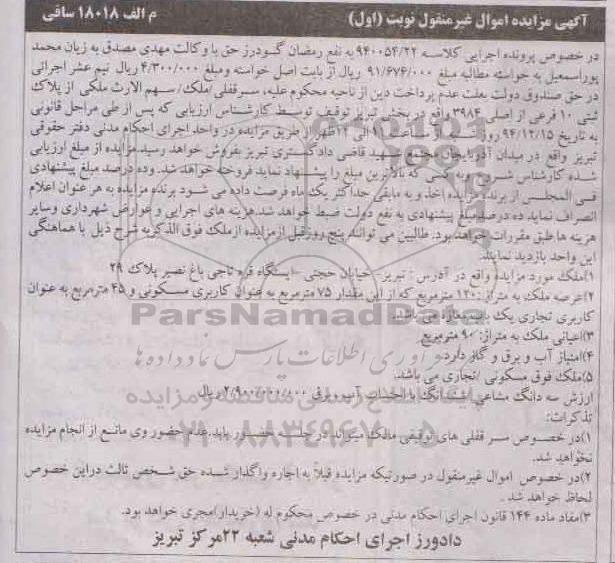 آگهی مزایده اموال غیرمنقول نوبت (اول) م الف ۱۸۰۱۸ ساقی
در خصوص پرونده اجرایی کلاسه ۹۴۰۰۵۴/۲۲ به نفع رمضان گودرز حق با وکالت مهدی مصدق به زیان محمد
پوراسمعیل به خواسته مطالبه مبلغ ۹۱/۶۷۶/۰۰۰ ریال از بابت اصل خواسته ومبلغ ۴/۳۰۰/۰۰۰ ریال نیم عشر اجرائی
در حق صندوق دولت بعلت عدم پرداخت دین از ناحیه محکوم علیه، سرقفلی/ملک/سهم الارث ملکی از پلاک
ثبتی ۱۰ فرعی از اصلی ۳۹۸۴ واقع در بخش تبریز توقیف توسط کارشناس ارزیابی که پس از طی مراحل قانونی
به تاریخ ۹۴/۱۲/۱۵ روز از ساعت ۱۱ الی ۱۲ ظهر از طریق مزایده در واحد اجرای احکام مدنی دفتر حقوقی
تبریز واقع در میدان آذربایجان مجتمع شهید قاضی دادگستری تبریز بفروش خواهد رسید.مزایده از مبلغ ارزیابی
شده کارشناس شروع وبه کسی که بالاترین مبلغ را پیشنهاد نماید فروخته خواهد شد. وده درصد مبلغ پیشنهادی
فی المجلس از برنده مزایده اخذ و به مابقی حداکثر یک ماه فرصت داده می شود برنده مزایده به هر عنوان اعلام
انصراف نماید ده درصد مبلغ پیشنهادی به نفع دولت ضبط خواهد شد.هزینه های اجرایی و عوارض شهرداری وسایر
هزینه ها طبق مقررات خواهد بود. طالبین می توانند پنج روز قبل از مزایده از ملک فوق الذکر به شرح ذیل با هماهنگی
این واحد بازدید نمایند.
۱)ملک مورد مزایده واقع در آدرس : تبریز- خیابان حجتی -ایستگاه قره ناجی باغ نصیر پلاک ۲۹
۲)عرصه ملک به متراژ: ۱۲۰ مترمربع که از این مقدار ۷۵ مترمربع به عنوان کاربری مسکونی و ۴۵ مترمربع به عنوان
کاربری تجاری یک باب مغازه می باشد.
۳)اعیانی ملک به متراژ: ۹۰ مترمربع
۴)امتیاز آب و برق و گاز دارد.
۵)ملک فوق مسکونی /تجاری می باشد.
ارزش سه دانگ مشاعی ششدانگ با احتساب آب و برق ۲/۹۰۰/۰۰۰/۰۰۰ ریال
تذکرات:
۱)در خصوص سر قفلی های توقیفی مالک میتواند در جلسه حضور یابد عدم حضور وی مانع از انجام مزایده
نخواهد شد.
۲)در خصوص اموال غیرمنقول در صورتیکه مزایده قبلاً به اجاره واگذار شده حق شخص ثالث دراین خصوص
لحاظ خواهد شد .
۳)مفاد ماده ۱۴۴ قانون اجرای احکام مدنی در خصوص محکوم له (خریدار)مجری خواهد بود.
دادورز اجرای احکام مدنی شعبه ۲۲مرکز تبریز
ParsNamadData
فرآوری اطلاعات پارس نماد داده ها
۰۲۱-۸۸۳۴۹۶۷۰-۵